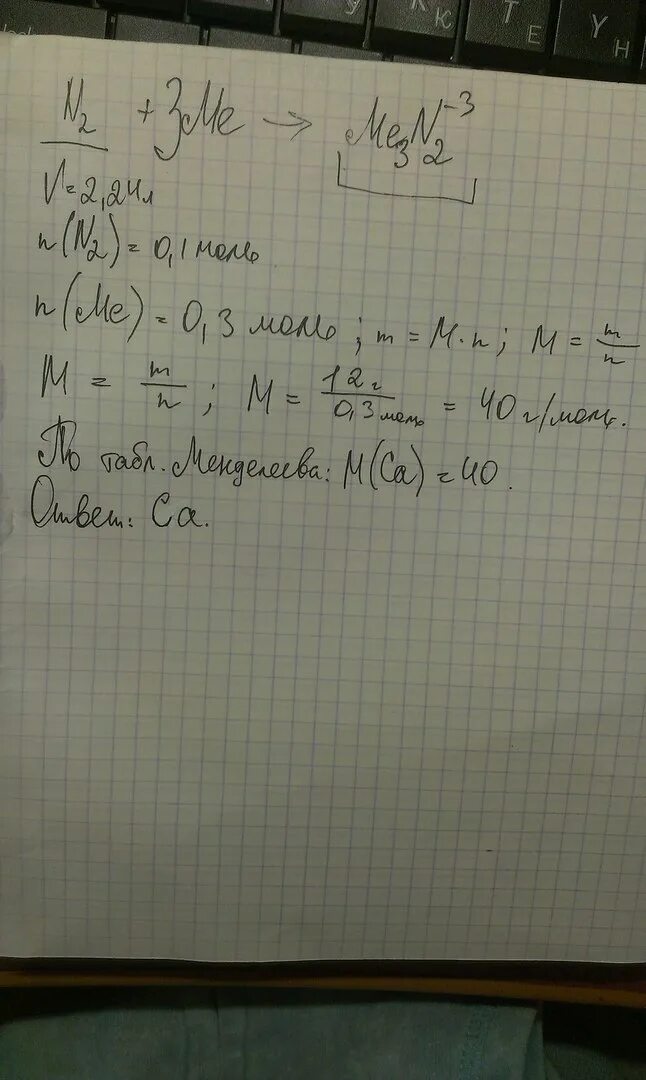 У К Ю Т Е Y Н
N₂ + 3Me → Me₃N₂⁻³
V=2,24л
n(N₂) = 0,1 моль
n(Me) = 0,3 моль; m = M·n; M = m/n
M = m/n; M = 12г/0,3моль = 40 г/моль.
По табл. Менделеева: M(Ca) = 40.
Ответ: Ca.